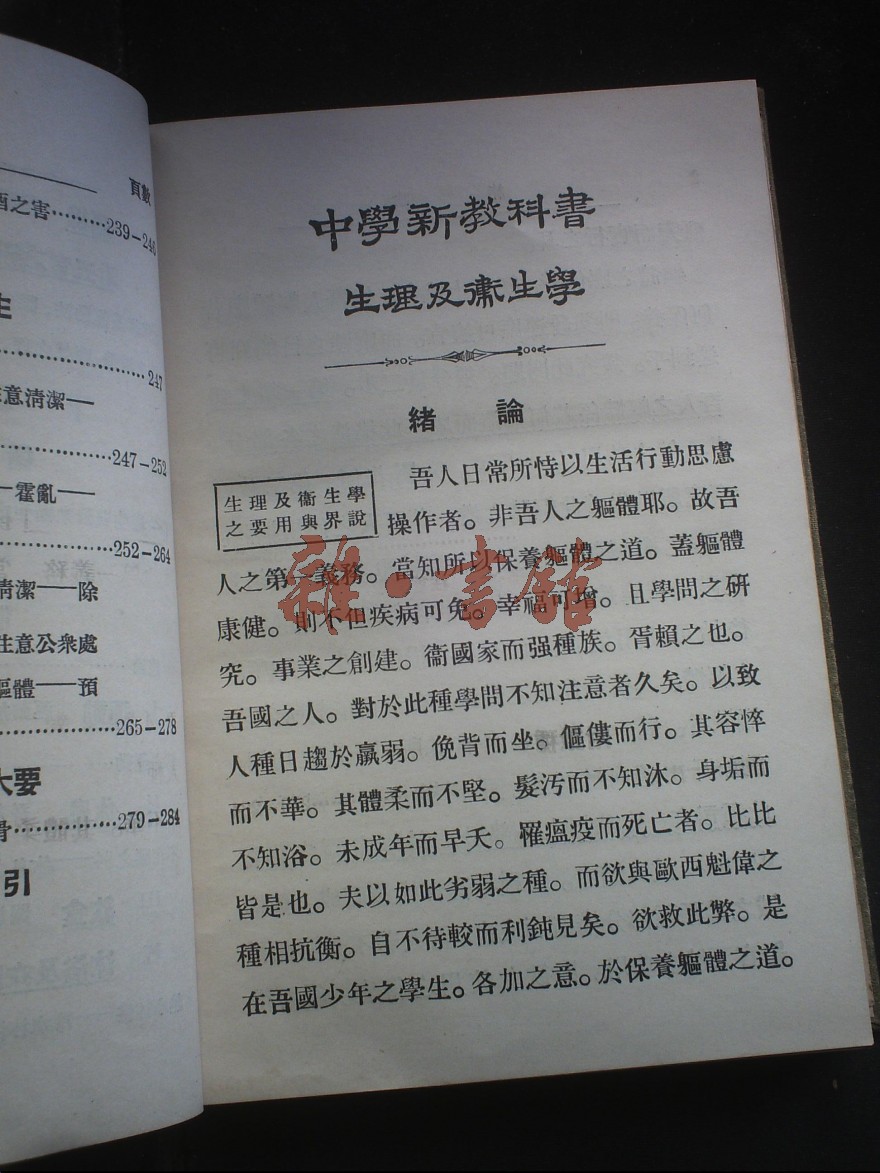 頁數
酒之害………239–246
生
………247
意清潔一
………247–252
一霍亂一
………252–264
清潔——除
注意公衆處
軀體——預
………265–278
大要
骨………279–284
引
中學新教科書
生理及衞生學
緒論
生理及衞生學
之要用與界說
吾人日常所恃以生活行動思慮
操作者。非吾人之軀體耶。故吾
人之第一義務。當知所以保養軀體之道。蓋軀體
康健。則不但疾病可免。幸福可增。且學問之研
究。事業之創建。衞國家而强種族。胥賴之也。
吾國之人。對於此種學問不知注意者久矣。以致
人種日趨於羸弱。俛背而坐。傴僂而行。其容悴
而不華。其體柔而不堅。髮汚而不知沐。身垢而
不知浴。未成年而早夭。罹瘟疫而死亡者。比比
皆是也。夫以如此劣弱之種。而欲與歐西魁偉之
種相抗衡。自不待較而利鈍見矣。欲救此弊。是
在吾國少年之學生。各加之意。於保養軀體之道。
雜·書館